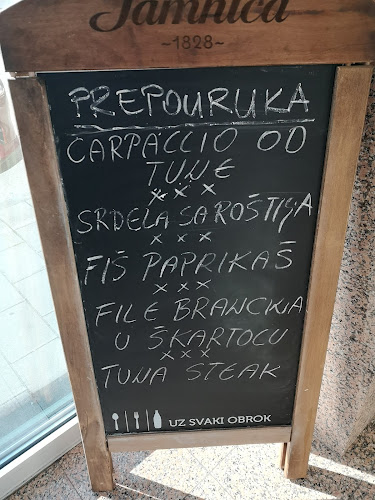 Jamnica
~1828~
PREPOURUKA
CARPACCIO OD
TUNE
x x x
SRDELA SA ROŠTIJA
x x x
FIŠ PAPRIKAŠ
x x x
FILE BRANCINA
U ŠKARTOCU
x x x
TUNA STEAK
UZ SVAKI OBROK